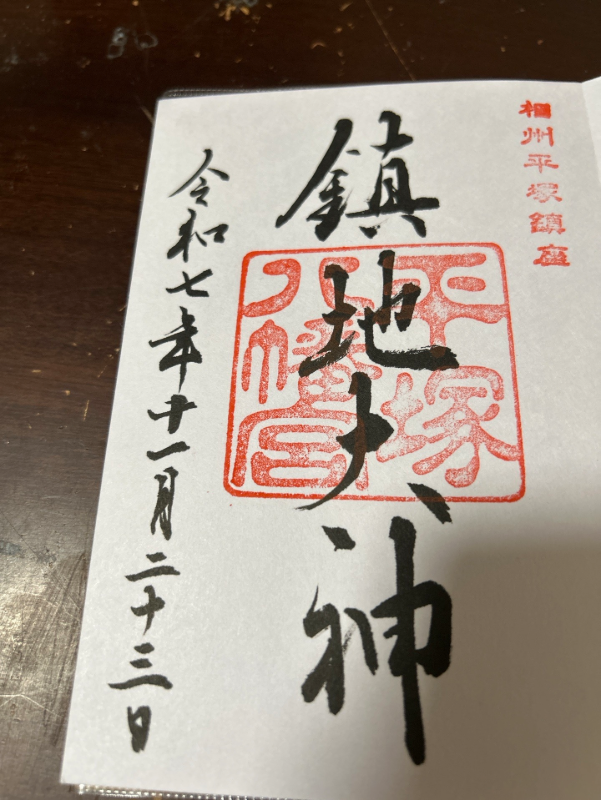 相州平塚鎮座
鎮地大神
平塚
八幡宮
令和七年十一月二十三日